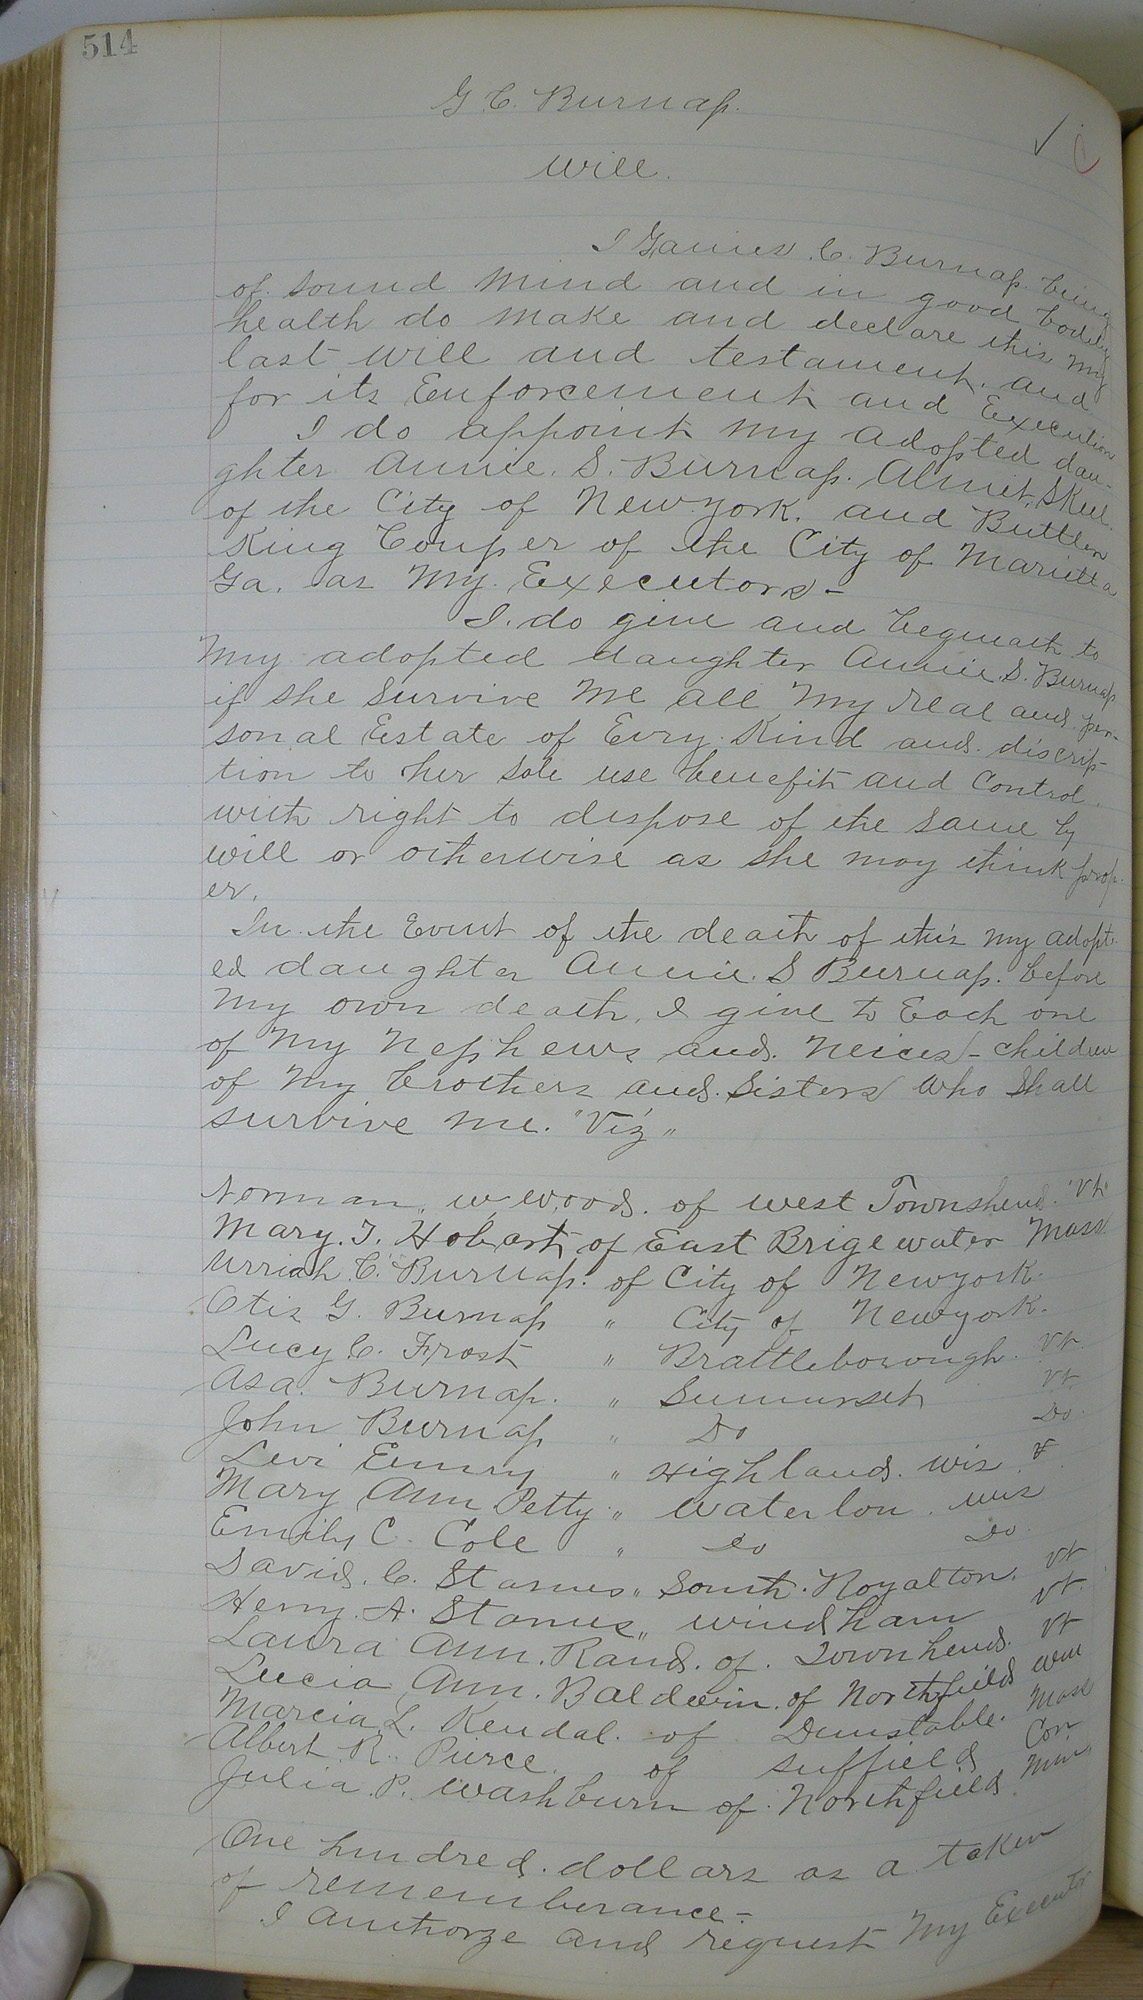 514
G. C. Burnap.
will.
I Gaines. C. Burnap. being
of sound mind and in good bodily
health do make and declare this my
last will and testament. and
for its Enforcement and Execution
I do appoint my adopted dau-
ghter Annie. S. Burnap. Almet. Skeel.
of the City of New York. and Buttler
King Couper of the City of Marietta
Ga. as my Executors -
I. do give and bequeath to
my adopted daughter Annie. S. Burnap
if she survive me all my real and per-
sonal Estate of Evry Kind and discrip-
tion to her sole use benefit and control.
with right to dispose of the same by
will or otherwise as she may think prop-
er.
In the Event of the death of this my adopt-
ed daughter Annie. S Burnap. before
my own death, I give to Each one
of my Nephews and. Neices - children
of my brothers and. Sisters who shall
survive me. "Viz"
Norman. W. Woods. of west Townshend. "Vt"
Mary. T. Hobart, of East Brigewater Mass
Urriah C. Burnap. of City of Newyork.
Otis G. Burnap " City of Newyork.
Lucy C. Frost " Brattleborough. Vt.
Asa. Burnap. " Summerset Vt.
John Burnap " Do Do.
Levi Emery " Highland. Wis.
Mary Ann Petty " Waterloo. Wis
Emily C. Cole " Do Do.
David. C. Stames " South. Royalton. Vt
Henry. A. Stames " windham Vt.
Laura Ann. Rand. of. Townhend. Vt
Lucia Ann. Baldwin. of Northfield
Marcia L. Kendal. of Dunstable. Mass
Albert. R. Pierce. of Suffield Con
Julia. P. Washburn of. Northfield. Min.
One hundred. dollars as a token
of rememberance -
I Authorze and request my Executor